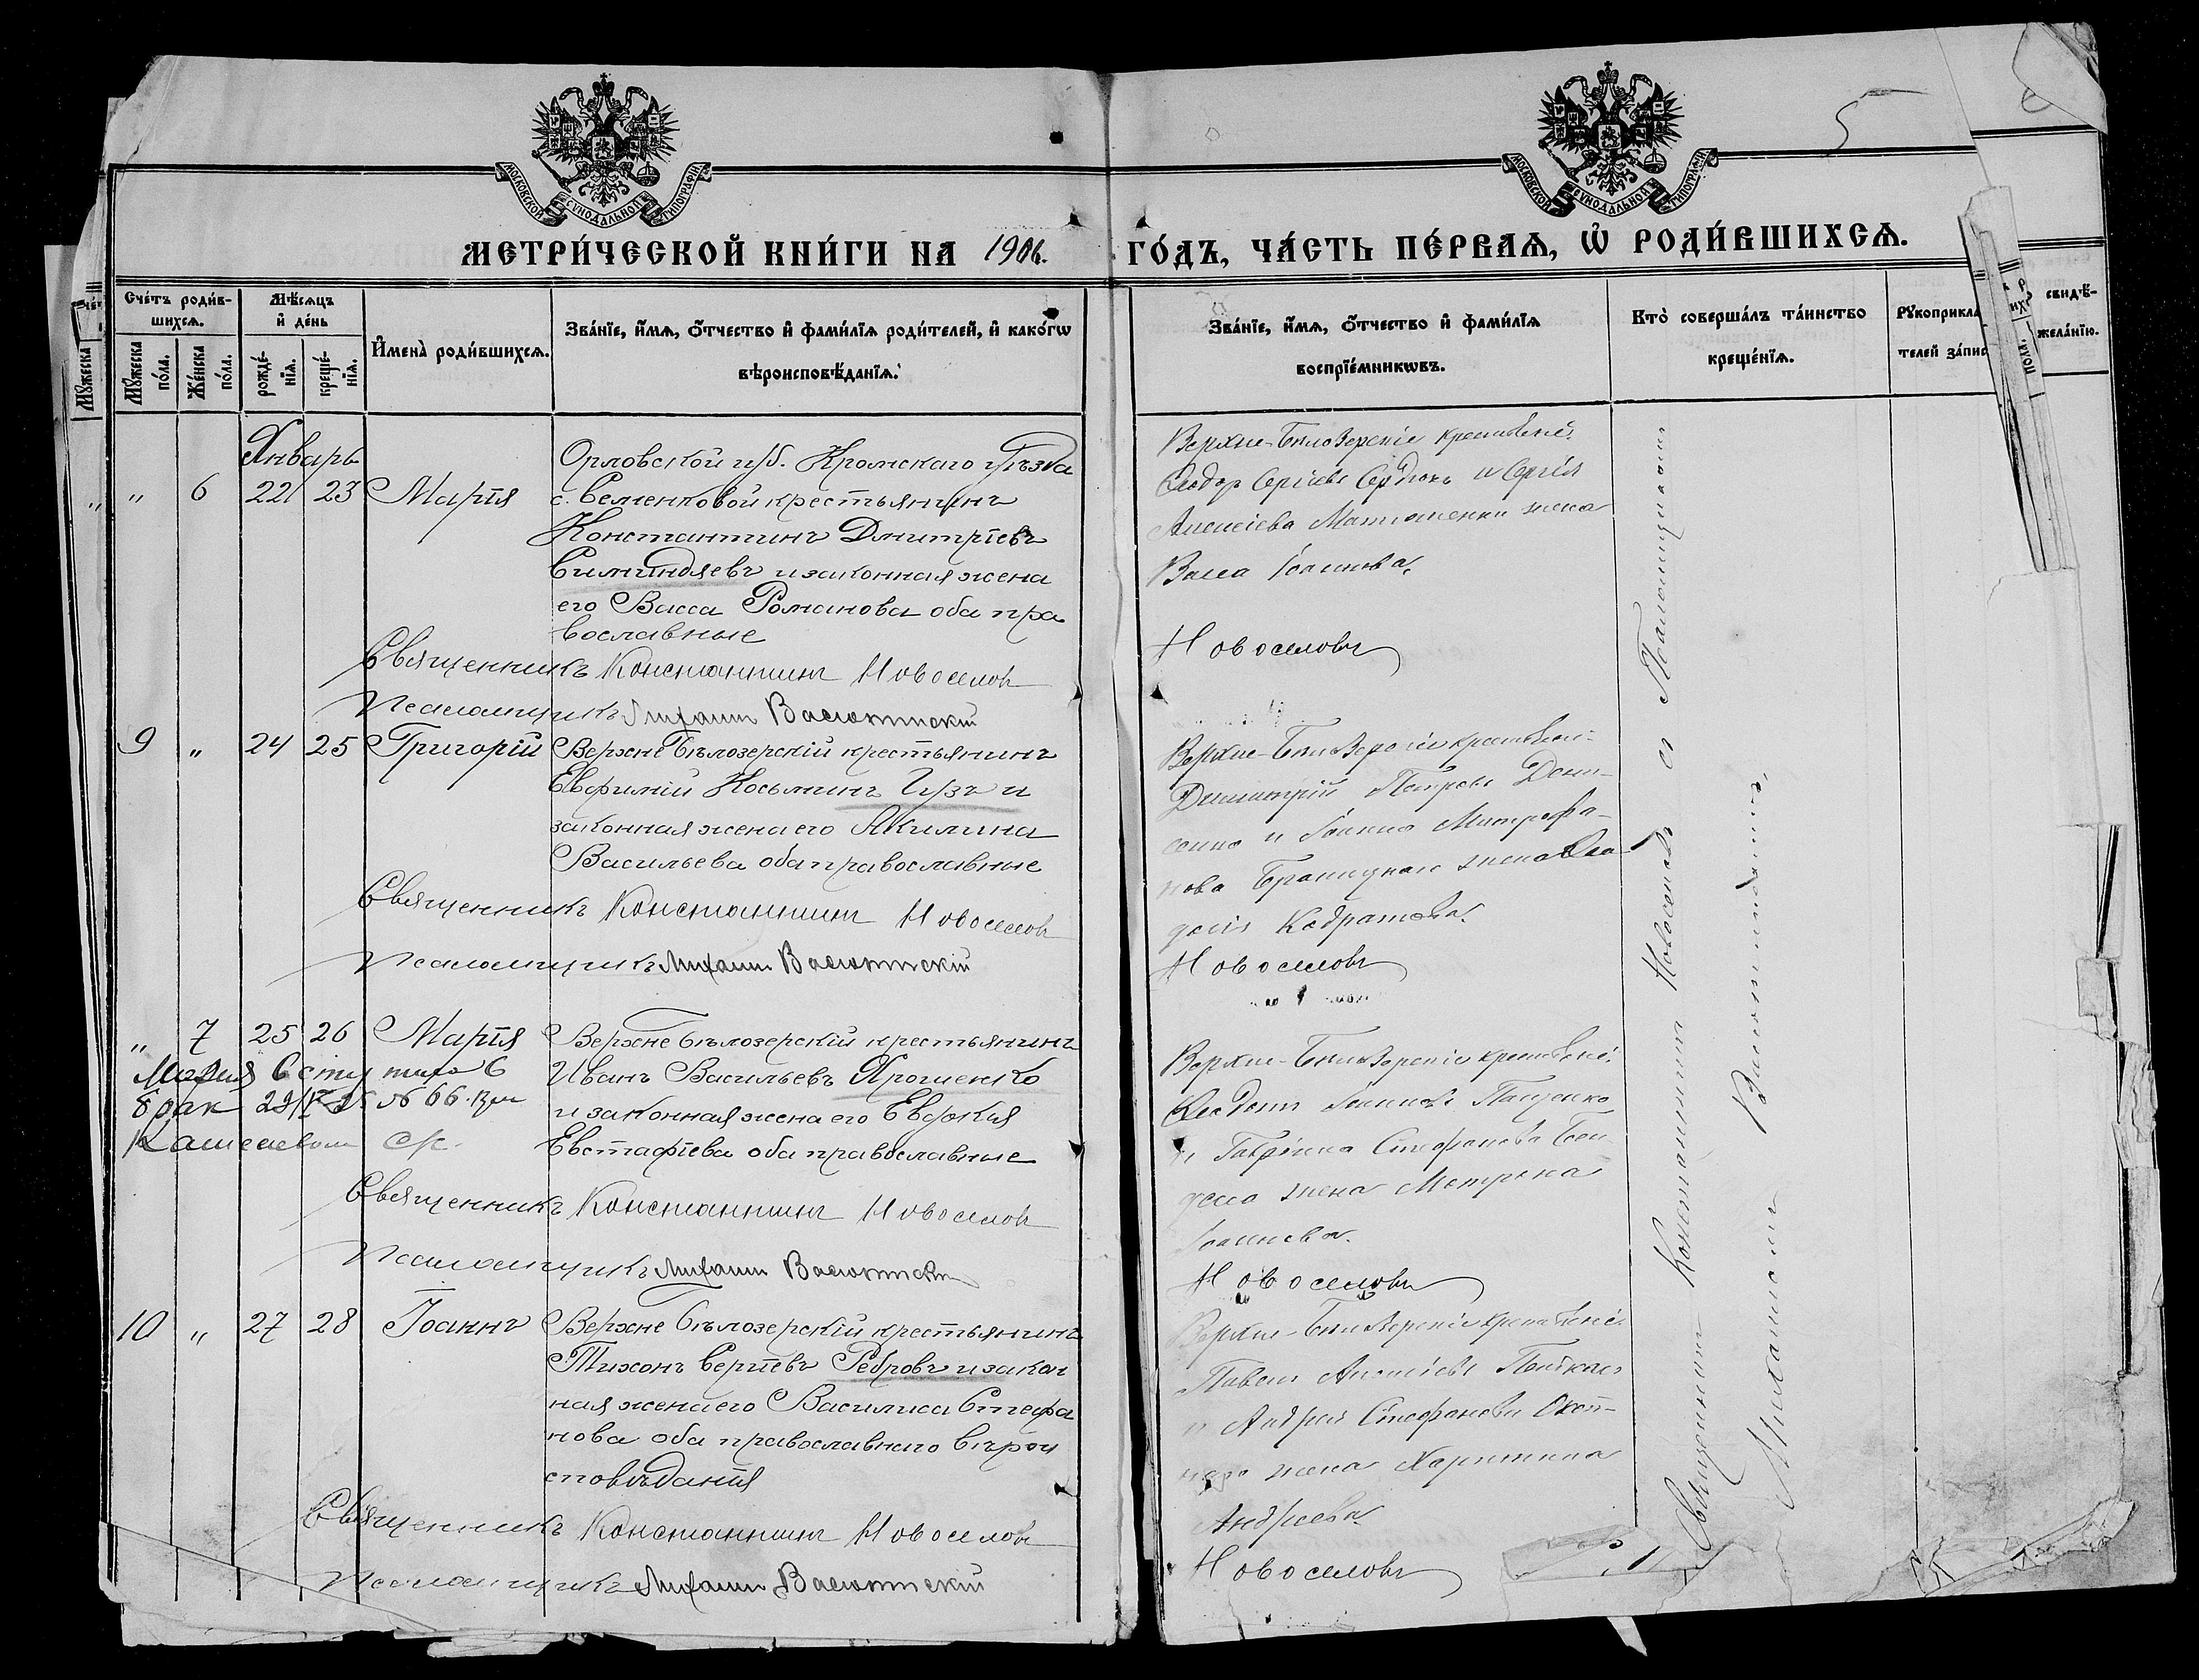 МОСКОВСКОЙ СУНОДАЛЬНОЙ ТИПОГРАФІИ
МОСКОВСКОЙ СУНОДАЛЬНОЙ ТИПОГРАФІИ
5
МЕТРИ́ЧЕСКОЙ КНИ́ГИ НА 1906. ГО́ДЪ, ЧА́СТЬ ПЕ́РВАѦ, Ѡ҆ РОДИ́ВШИХСѦ.
Сче́тъ роди́в-
шихсѧ.
Мꙋ́жеска по́ла.
Же́нска по́ла.
Мѣ́сѧцъ
и҆ де́нь
рожде́-
нїѧ.
креще́-
нїѧ.
И҆мена̀ роди́вшихсѧ.
Зва́нїе, и҆́мѧ, ѻ҆́тчество и҆ фами́лїѧ роди́телей, и҆ како́гѡ
вѣроисповѣ́данїѧ.
Зва́нїе, и҆́мѧ, ѻ҆́тчество и҆ фами́лїѧ
воспрїе́мникѡвъ.
Кто̀ соверша́лъ та́инство
креще́нїѧ.
Рꙋкоприкла
телей за́пис
свидѣ́-
жела́нїю.
Январь
„ 6 22 23 Марія
Орловской губ. Кромскаго уѣзда
с. Семенковой крестьянинъ
Константинъ Дмитріевъ
Симиндяевъ и законная жена
его Васса Романова оба пра
вославные
Священникъ Константинъ Новоселовъ
Псаломщикъ Михаилъ Васютинскій
Верхне-Бѣлозерскіе крестьяне:
Ѳеодоръ Сергіевъ Сердюкъ и Сергія
Алексіева Матюшенки жена
Васса Іоаннова.
Новоселовъ
9 „ 24 25 Григорій
Верхне Бѣлозерскій крестьянинъ
Евфимій Косьминъ Гузъ и
законная жена его Акилина
Васильева оба православные
Священникъ Константинъ Новоселовъ
Псаломщикъ Михаилъ Васютинскій
Верхне-Бѣлозерскіе крестьяне:
Димитрій Петровъ Дени-
сенко и Іоанна Митрофа-
нова жена Ѳео-
досія Кодратова.
Новоселовъ
„ 7 25 26 Марія
Верхне Бѣлозерскій крестьянинъ
Иванъ Васильевъ Ярошенко
и законная жена его Евдокія
Евстафіева оба православные
Мария Вступила в
брак № 66
Священникъ Константинъ Новоселовъ
Псаломщикъ Михаилъ Васютинскій
Верхне-Бѣлозерскіе крестьяне:
Іоанновъ Пащенко
и Гавріила Стефанова
жена Матрона
Іоаннова.
Новоселовъ
10 „ 27 28 Іоаннъ
Верхне Бѣлозерскій крестьянинъ
Тихонъ Сергіевъ Ребровъ и закон
ная жена его Василиса Стефа
нова оба православнаго вѣрои
сповѣданія
Священникъ Константинъ Новоселовъ
Псаломщикъ Михаилъ Васютинскій
Верхне-Бѣлозерскіе крестьяне:
Павелъ Алексіевъ
и Андрея Стефанова
жена Харитина
Андреева.
Новоселовъ
Священникъ Константинъ Новоселовъ и Псаломщикъ
Михаилъ Васютинскій